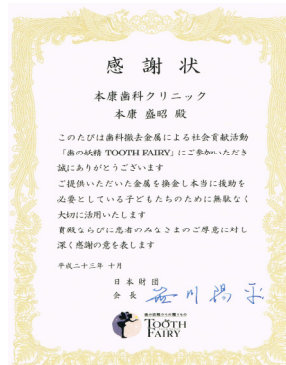 感謝状
本康歯科クリニック
本康 盛昭 殿
このたびは歯科撤去金属による社会貢献活動
「歯の妖精 TOOTH FAIRY」にご参加いただき
誠にありがとうございます
ご提供いただいた金属を換金し本当に援助を
必要としている子どもたちのために無駄なく
大切に活用いたします
貴殿ならびに患者のみなさまのご厚意に対し
深く感謝の意を表します
平成二十三年 十月
日本財団
会長 笹川陽平
TOOTH
FAIRY